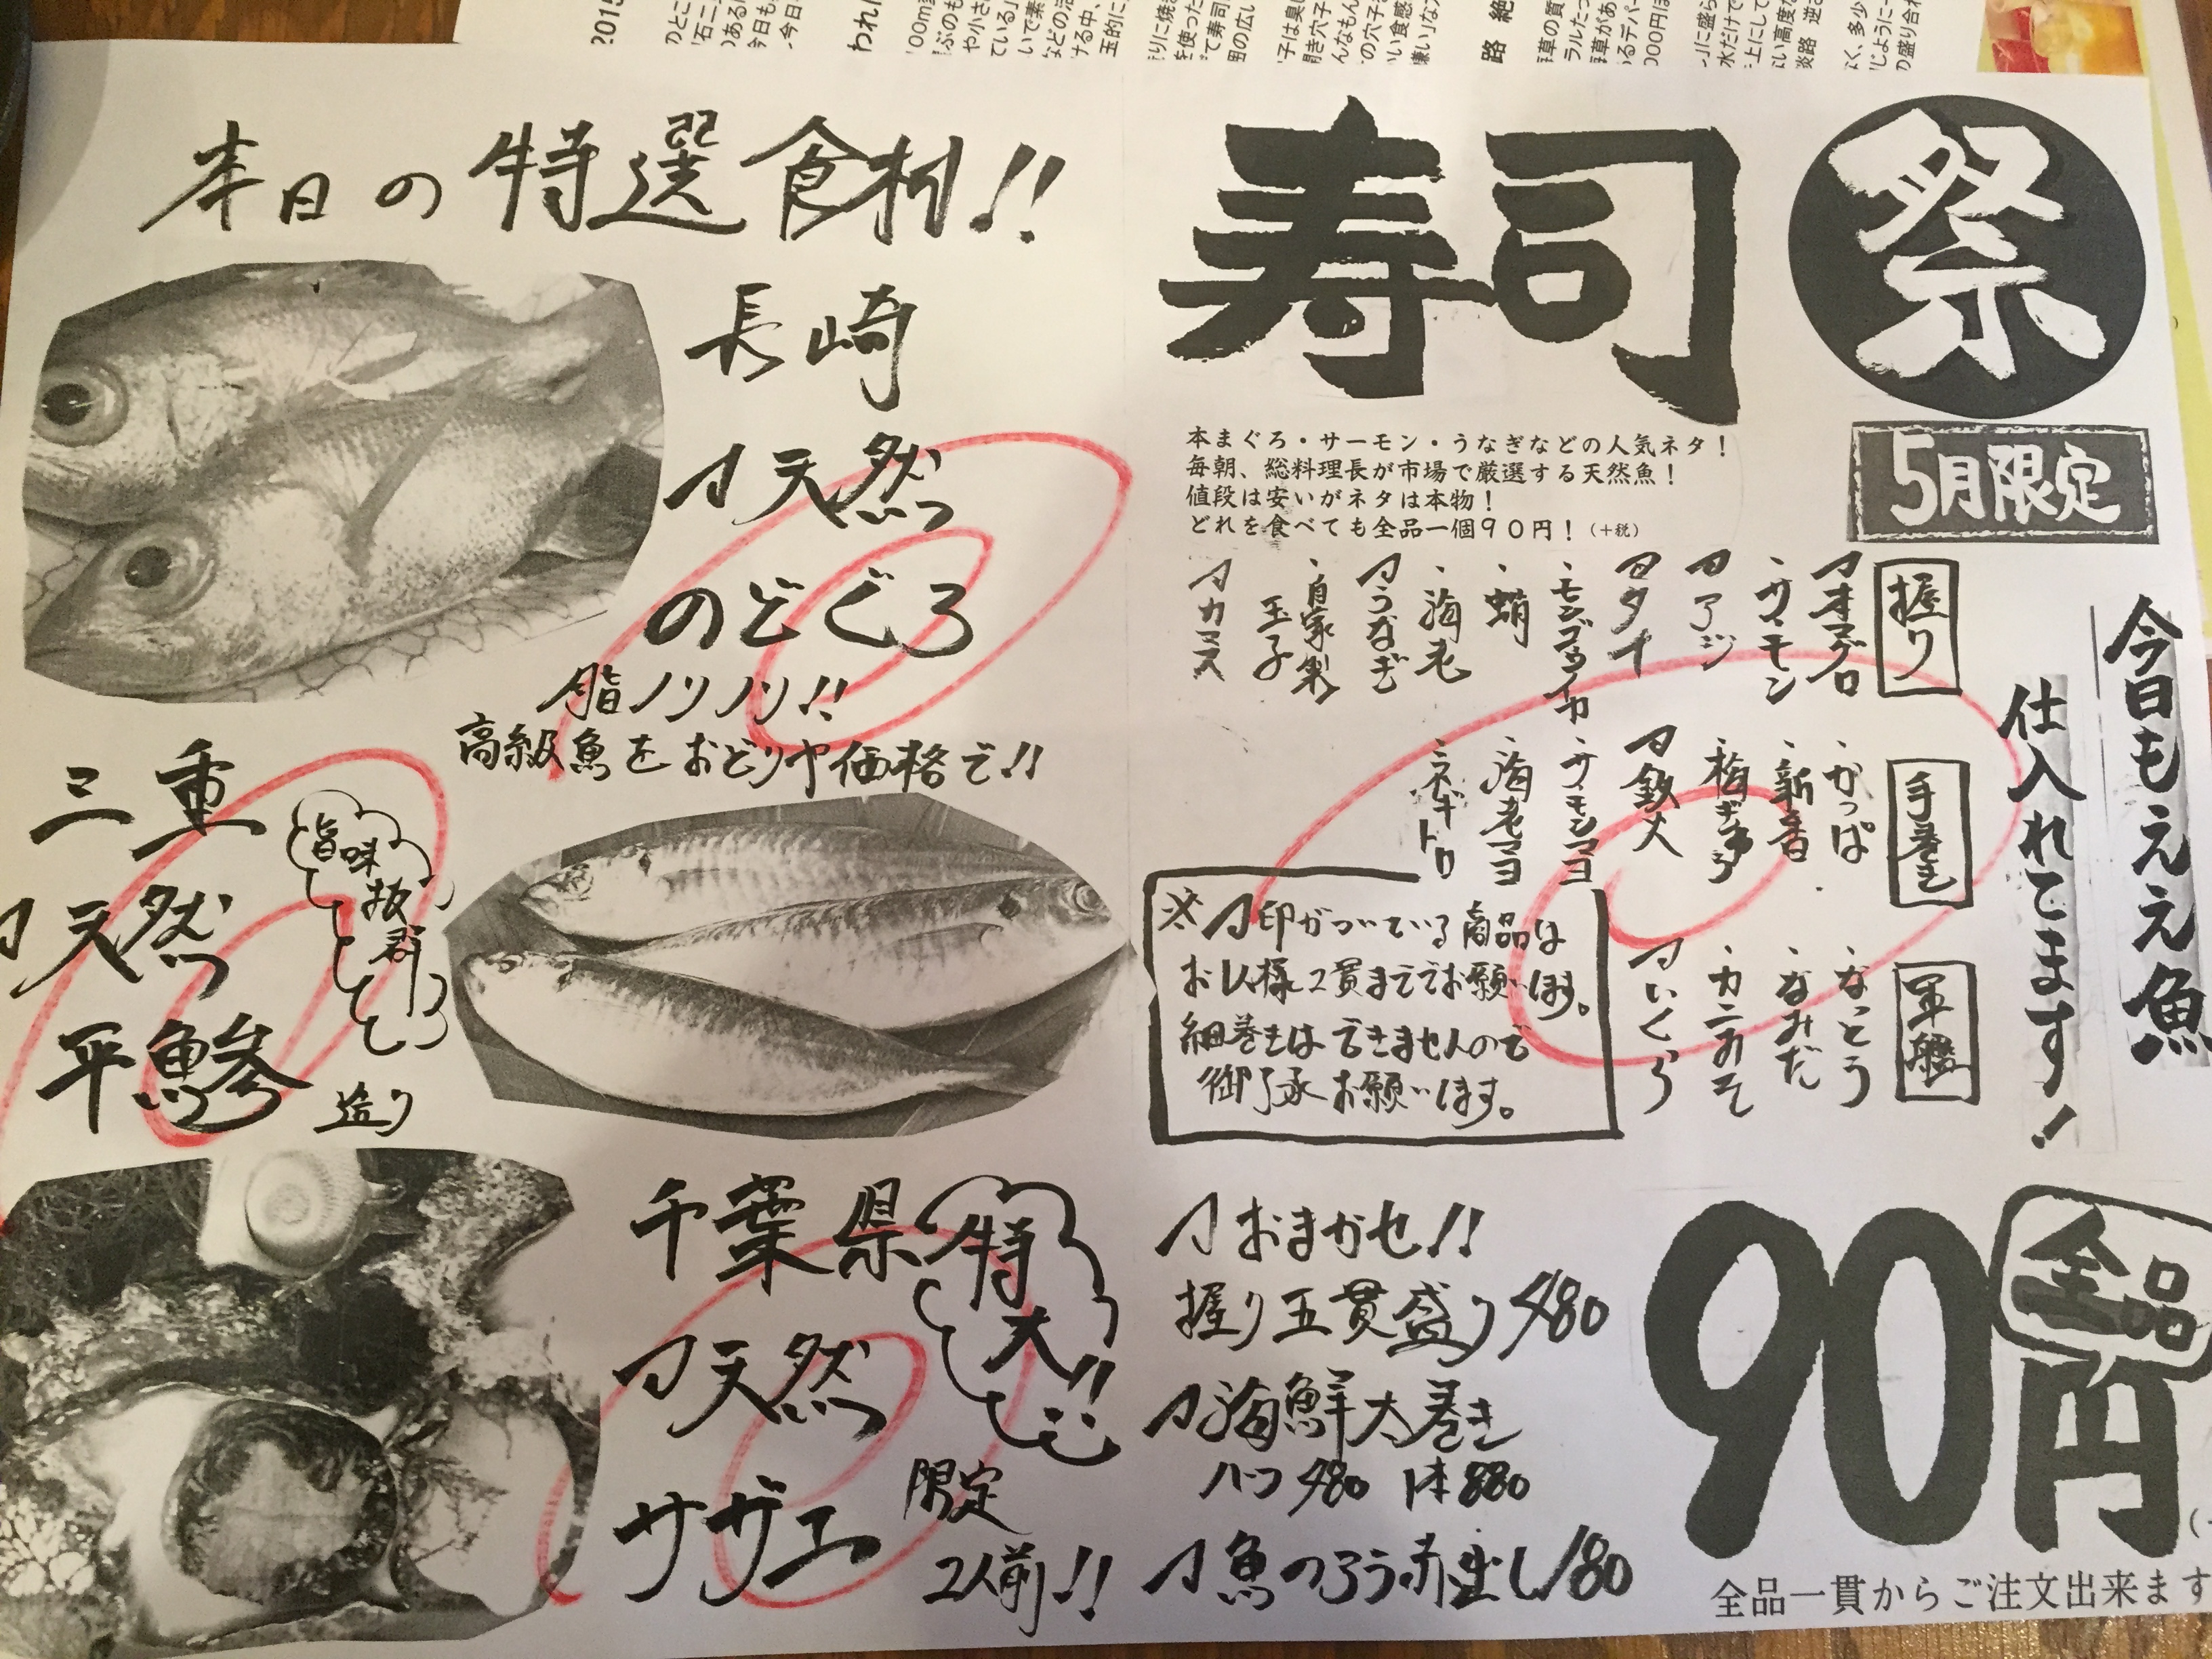 本日の特選食材!!
長崎
天然
のどぐろ
脂ノリノリ!!
高級魚をおどりヤ価格で!!
三重
天然
平鯵
旨味
抜群
造り
千葉県
特大!!
天然
サザエ
限定
2人前!!
寿司
祭
5月限定
本まぐろ・サーモン・うなぎなどの人気ネタ!
毎朝、総料理長が市場で厳選する天然魚!
値段は安いがネタは本物!
どれを食べても全品一個90円!(+税)
今日もええ魚
仕入れてます!
握り
・サーモン
アジ
タイ
・モンゴウイカ
・蛸
・海老
うなぎ
・自家製
玉子
カマス
手巻き
・かっぱ
・新香
・梅きゅう
鉄火
・サーモンマヨ
・海老マヨ
・ネギトロ
軍艦
・なっとう
・なみだ
・カニみそ
いくら
※ 印がついている商品は
お1人様2貫まででお願いします。
細巻きはできませんので
御了承お願いします。
おまかせ!!
握り五貫盛り480
海鮮大巻き
ハーフ480 1本880
魚のあら赤出し180
全品
90円
全品一貫からご注文出来ます
2015